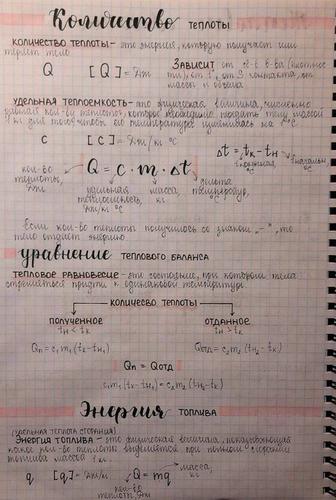 Количество теплоты
КОЛИЧЕСТВО ТЕПЛОТЫ - это энергия, которую получает или
теряет тело
Q [Q] = Дж
ЗАВИСИТ от
массы и объёма
УДЕЛЬНАЯ ТЕПЛОЕМКОСТЬ - это физическая величина, численно
равная кол-ву теплоты, которое необходимо передать телу массой
1 кг для того чтобы его температура изменилась на 1°C
c [c] = Дж/кг °C
Δt = tк - tн
кол-во теплоты, Дж
Q = c · m · Δt
удельная теплоёмкость, Дж/кг °C
масса, кг
температур, °C
Если кол-во теплоты получилось со знаком „-“, то
тело отдает энергию
уравнение теплового баланса
ТЕПЛОВОЕ РАВНОВЕСИЕ - это состояние, при котором тела
стремяться придти к одинаковой температуре.
КОЛИЧЕСВО ТЕПЛОТЫ
ПОЛУЧЕННОЕ ОТДАННОЕ
tн < tк tн > tк
Qп = c₁m₁(tк-tн₁) Qотд = c₂m₂(tн₂-tк)
Qп = Qотд
c₁m₁(tк-tн₁) = c₂m₂(tн₂-tк)
Энергия ТОПЛИВА
(УДЕЛЬНАЯ ТЕПЛОТА СГОРАНИЯ)
ЭНЕРГИЯ ТОПЛИВА - это физическая величина, показывающая
какое кол-во теплоты выделяется при полном сгорании
топлива массой 1 кг.
q [q] = Дж/кг Q = mq
масса, кг
кол-во теплоты, Дж